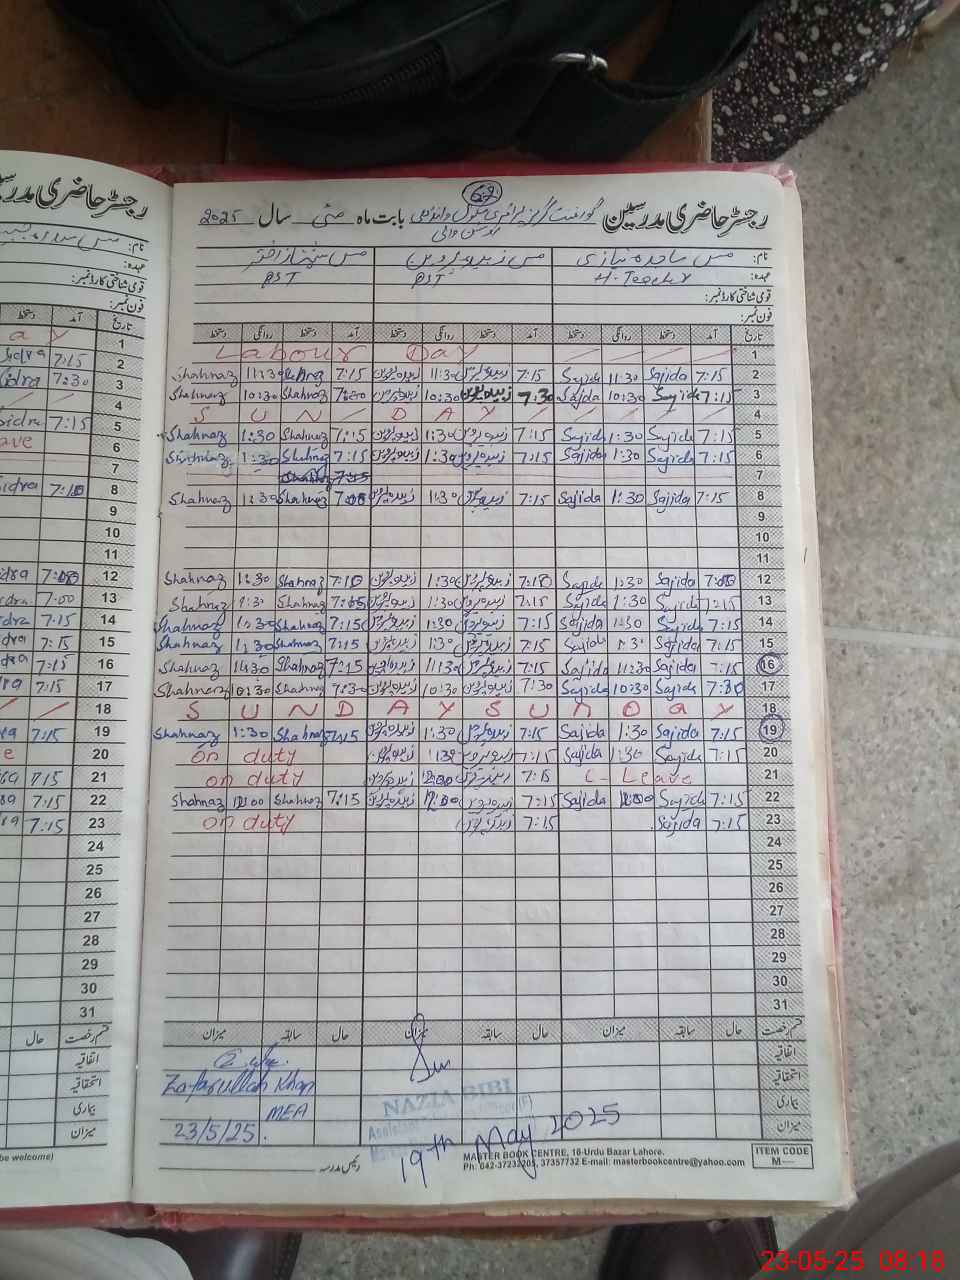 رجسٹر حاضری مدرسین گورنمنٹ گرلز پرائمری سکول بابت ماہ مئی سال 2025
67
نام: مس ساجدہ نیازی مس زبیدہ پروین مس شہناز اختر
عہدہ: H. Teacher PST PST
قومی شناختی کارڈ نمبر:
فون نمبر:
تاریخ آمد دستخط روانگی دستخط آمد دستخط روانگی دستخط آمد دستخط روانگی دستخط
Labour Day 1
Shahnaz 11:30 7:15 زبیدہ پروین 11:30 زبیدہ پروین 7:15 Sajida 11:30 Sajida 7:15 2
Shahnaz 10:30 Shahnaz زبیدہ پروین 10:30 زبیدہ پروین 7:30 Sajida 10:30 Sajida 7:15 3
SUN / DAY / 4
Shahnaz 1:30 Shahnaz 7:15 زبیدہ پروین 1:30 زبیدہ پروین 7:15 Sajida 1:30 Sajida 7:15 5
Shahnaz 1:30 Shahnaz 7:15 زبیدہ پروین 1:30 زبیدہ پروین 7:15 Sajida 1:30 Sajida 7:15 6
7
Shahnaz 1:30 Shahnaz زبیدہ پروین 1:30 زبیدہ پروین 7:15 Sajida 1:30 Sajida 7:15 8
9
10
11
Shahnaz 1:30 Shahnaz 7:10 زبیدہ پروین 1:30 زبیدہ پروین 7:10 Sajida 1:30 Sajida 12
Shahnaz 1:30 Shahnaz زبیدہ پروین 1:30 زبیدہ پروین 7:15 Sajida 1:30 Sajida 7:15 13
Shahnaz 1:30 Shahnaz 7:15 زبیدہ پروین 1:30 زبیدہ پروین 7:15 Sajida 1:30 Sajida 7:15 14
Shahnaz 1:30 Shahnaz 7:15 زبیدہ پروین 1:30 زبیدہ پروین 7:15 Sajida Sajida 7:15 15
Shahnaz 11:30 Shahnaz 7:15 زبیدہ پروین 11:30 زبیدہ پروین 7:15 Sajida 11:30 Sajida 7:15 16
Shahnaz 10:30 Shahnaz 7:30 زبیدہ پروین 10:30 زبیدہ پروین 7:30 Sajida 10:30 Sajida 7:30 17
SUNDAY SUNDAY 18
Shahnaz 1:30 Shahnaz 7:15 زبیدہ پروین 1:30 زبیدہ پروین 7:15 Sajida 1:30 Sajida 7:15 19
on duty زبیدہ پروین زبیدہ پروین 7:15 Sajida 1:30 Sajida 7:15 20
on duty زبیدہ پروین 12:00 زبیدہ پروین 7:15 C-Leave 21
Shahnaz 12:00 Shahnaz 7:15 زبیدہ پروین 12:00 زبیدہ پروین 7:15 Sajida 12:00 Sajida 7:15 22
on duty زبیدہ پروین 7:15 Sajida 7:15 23
24
25
26
27
28
29
30
31
قسم رخصت حال سابقہ میزان حال سابقہ میزان حال سابقہ میزان
اتفاقیہ
استحقاقیہ
بیماری
میزان
Zafarullah Khan
MEA
23/5/25.
NAZIA BIBI
19th May 2025
رئیس مدرسہ
MASTER BOOK CENTRE, 18-Urdu Bazar Lahore.
Ph: 042-37232205, 37357732 E-mail: masterbookcentre@yahoo.com
ITEM CODE
M—
رجسٹر حاضری
نام:
عہدہ:
قومی شناختی کارڈ نمبر:
فون نمبر:
تاریخ آمد دستخط
ay 1
7:15 2
idra 7:30 3
4
Sidra 7:15 5
ave 6
7
idra 8
9
10
11
idra 12
7:00 13
dra 7:15 14
dra 7:15 15
ra 7:15 16
ra 7:15 17
18
ra 7:15 19
e 20
ra 7:15 21
ra 7:15 22
ra 7:15 23
24
25
26
27
28
29
30
31
قسم رخصت حال
اتفاقیہ
استحقاقیہ
بیماری
میزان
be welcome)
23-05-25 08:18